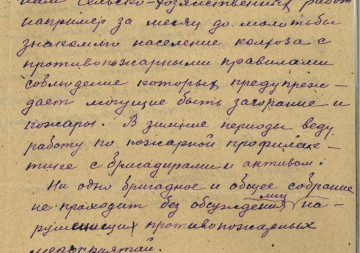 нам сельско-хозяйственных работ
например за месяц до молотьбы
знакомлю население колхоза с
противопожарными правилами
соблюдение которых предупреж-
дает могущие быть загорание и
пожары. В зимние периоды веду
работу по пожарной профилак-
тике с бригадирами и активом.
Ни одно бригадное и общее собрание
не проходит без обсуждения на-
рушающих противопожарных
мероприятий.